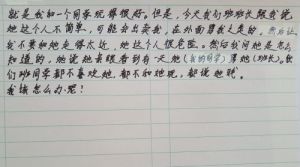 就是我和一个同学玩得很好。但是,今天我们班班长跟我说,
她这个人不简单,可能会出卖我,在外面骂我之类的,然后让
我不要和她走得太近,她这个人很危险。然后我问她是怎么
知道的,她说她亲眼看到有一天她(我的同学)骂她(班长)。我
们班同学都不喜欢她,都不和她玩,都说她贱。
我该怎么办呢!